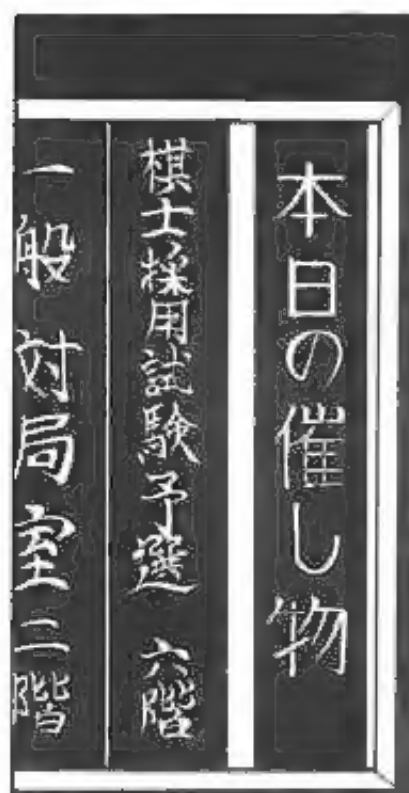 本日の催し物
棋士採用試験予選 六階
一般対局室二階